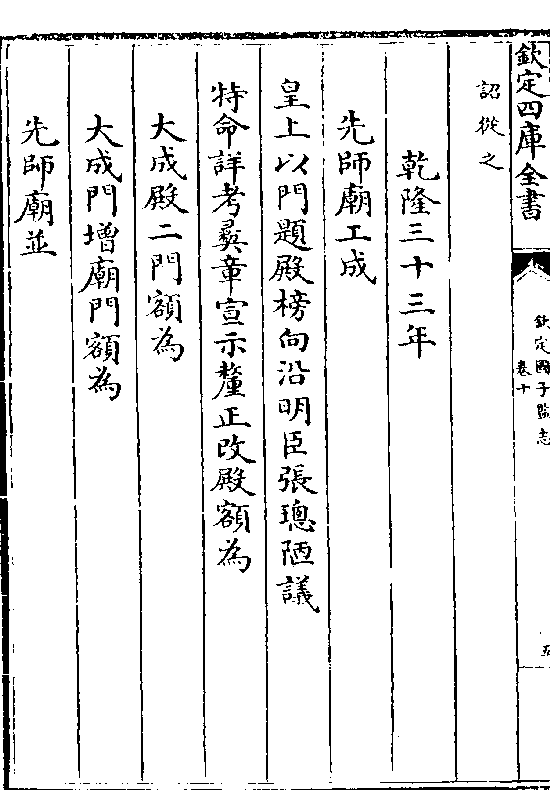 欽定四庫全書
欽定國子監志
卷十
詔從之
乾隆三十三年
先師廟工成
皇上以門題殿榜向沿明臣張璁陋議
特命詳考彝章宣示釐正改殿額為
大成殿二門額為
大成門增廟門額為
先師廟並